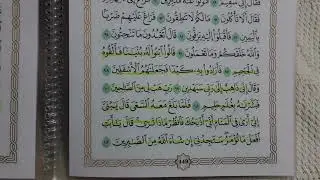 فَقَالَ إِنِّي سَقِيمٌ ۝٨٩ فَتَوَلَّوْا۟ عَنْهُ مُدْبِرِينَ ۝٩٠ فَرَاغَ إِلَىٰٓ ءَالِهَتِهِمْ
فَقَالَ أَلَا تَأْكُلُونَ ۝٩١ مَا لَكُمْ لَا تَنطِقُونَ ۝٩٢ فَرَاغَ عَلَيْهِمْ ضَرْبًۢا
بِٱلْيَمِينِ ۝٩٣ فَأَقْبَلُوٓا۟ إِلَيْهِ يَزِفُّونَ ۝٩٤ قَالَ أَتَعْبُدُونَ مَا تَنْحِتُونَ ۝٩٥
وَٱللَّهُ خَلَقَكُمْ وَمَا تَعْمَلُونَ ۝٩٦ قَالُوا۟ ٱبْنُوا۟ لَهُۥ بُنْيَٰنًا فَأَلْقُوهُ
فِي ٱلْجَحِيمِ ۝٩٧ فَأَرَادُوا۟ بِهِۦ كَيْدًا فَجَعَلْنَٰهُمُ ٱلْأَسْفَلِينَ ۝٩٨
وَقَالَ إِنِّي ذَاهِبٌ إِلَىٰ رَبِّي سَيَهْدِينِ ۝٩٩ رَبِّ هَبْ لِي مِنَ ٱلصَّٰلِحِينَ ۝١٠٠
فَبَشَّرْنَٰهُ بِغُلَٰمٍ حَلِيمٍ ۝١٠١ فَلَمَّا بَلَغَ مَعَهُ ٱلسَّعْيَ قَالَ يَٰبُنَيَّ
إِنِّيٓ أَرَىٰ فِي ٱلْمَنَامِ أَنِّيٓ أَذْبَحُكَ فَٱنظُرْ مَاذَا تَرَىٰ ۚ قَالَ يَٰٓأَبَتِ
ٱفْعَلْ مَا تُؤْمَرُ ۖ سَتَجِدُنِيٓ إِن شَآءَ ٱللَّهُ مِنَ ٱلصَّٰبِرِينَ ۝١٠٢
449